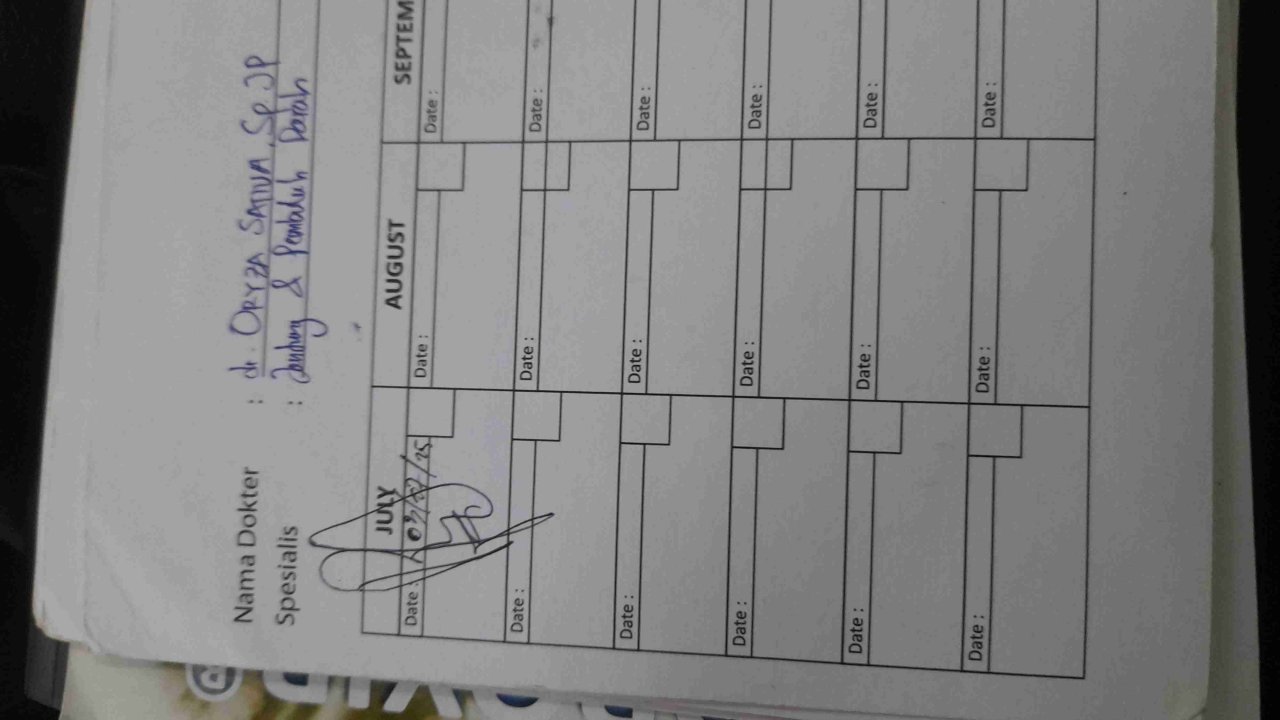 Nama Dokter : dr. ORYZA SATIVA, Sp.JP
Spesialis : Jantung & Pembuluh Darah
JULY AUGUST SEPTEM
Date : 03/07/25 Date : Date :
Date : Date : Date :
Date : Date : Date :
Date : Date : Date :
Date : Date : Date :
Date : Date : Date :